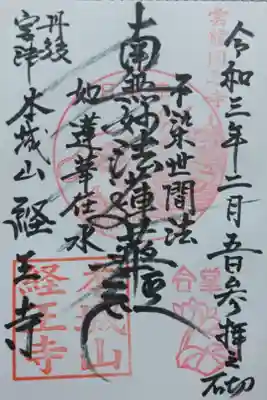 令和三年二月吉日参拝之砌
不染世間法
南無妙法蓮華経
如蓮華在水
丹後
宮津 本城山 経王寺
合掌
本城山
経王寺